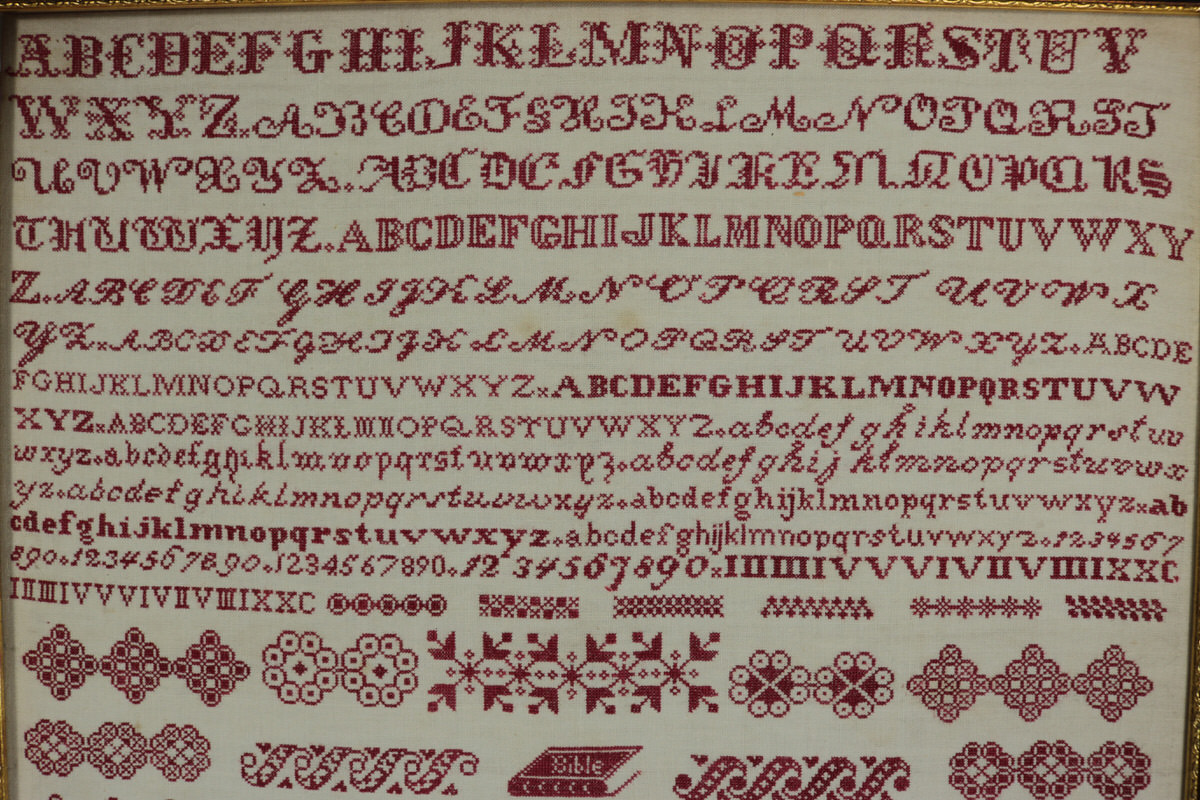 ABCDEFGHIJKLMNOPQRSTUV
WXYZ.ABCDEFGHIJKLMNOPQRST
UVWXYZ.ABCDEFGHIJKLMNOPQRS
TUVWXYZ.ABCDEFGHIJKLMNOPQRSTUVWXY
Z.ABCDEFGHIJKLMNOPQRSTUVWX
YZ.ABCDEFGHIJKLMNOPQRSTUVWXYZ.ABCDE
FGHIJKLMNOPQRSTUVWXYZ.ABCDEFGHIJKLMNOPQRSTUVW
XYZ.ABCDEFGHIJKLMNOPQRSTUVWXYZ.abcdefghiklmnopqrstuv
wxyz.abcdefghiklmnopqrstuvwxyz.abcdefghijklmnopqrstuvwx
yz.abcdefghiklmnopqrstuvwxyz.abcdefghijklmnopqrstuvwxyz.ab
cdefghijklmnopqrstuvwxyz.abcdefghijklmnopqrstuvwxyz.1234567
890.1234567890.1234567890.1234567890.IIIIIIIVVVIVIIVIIIIXXC
IIIIIIIVVVIVIIVIIIIXXC
Bible